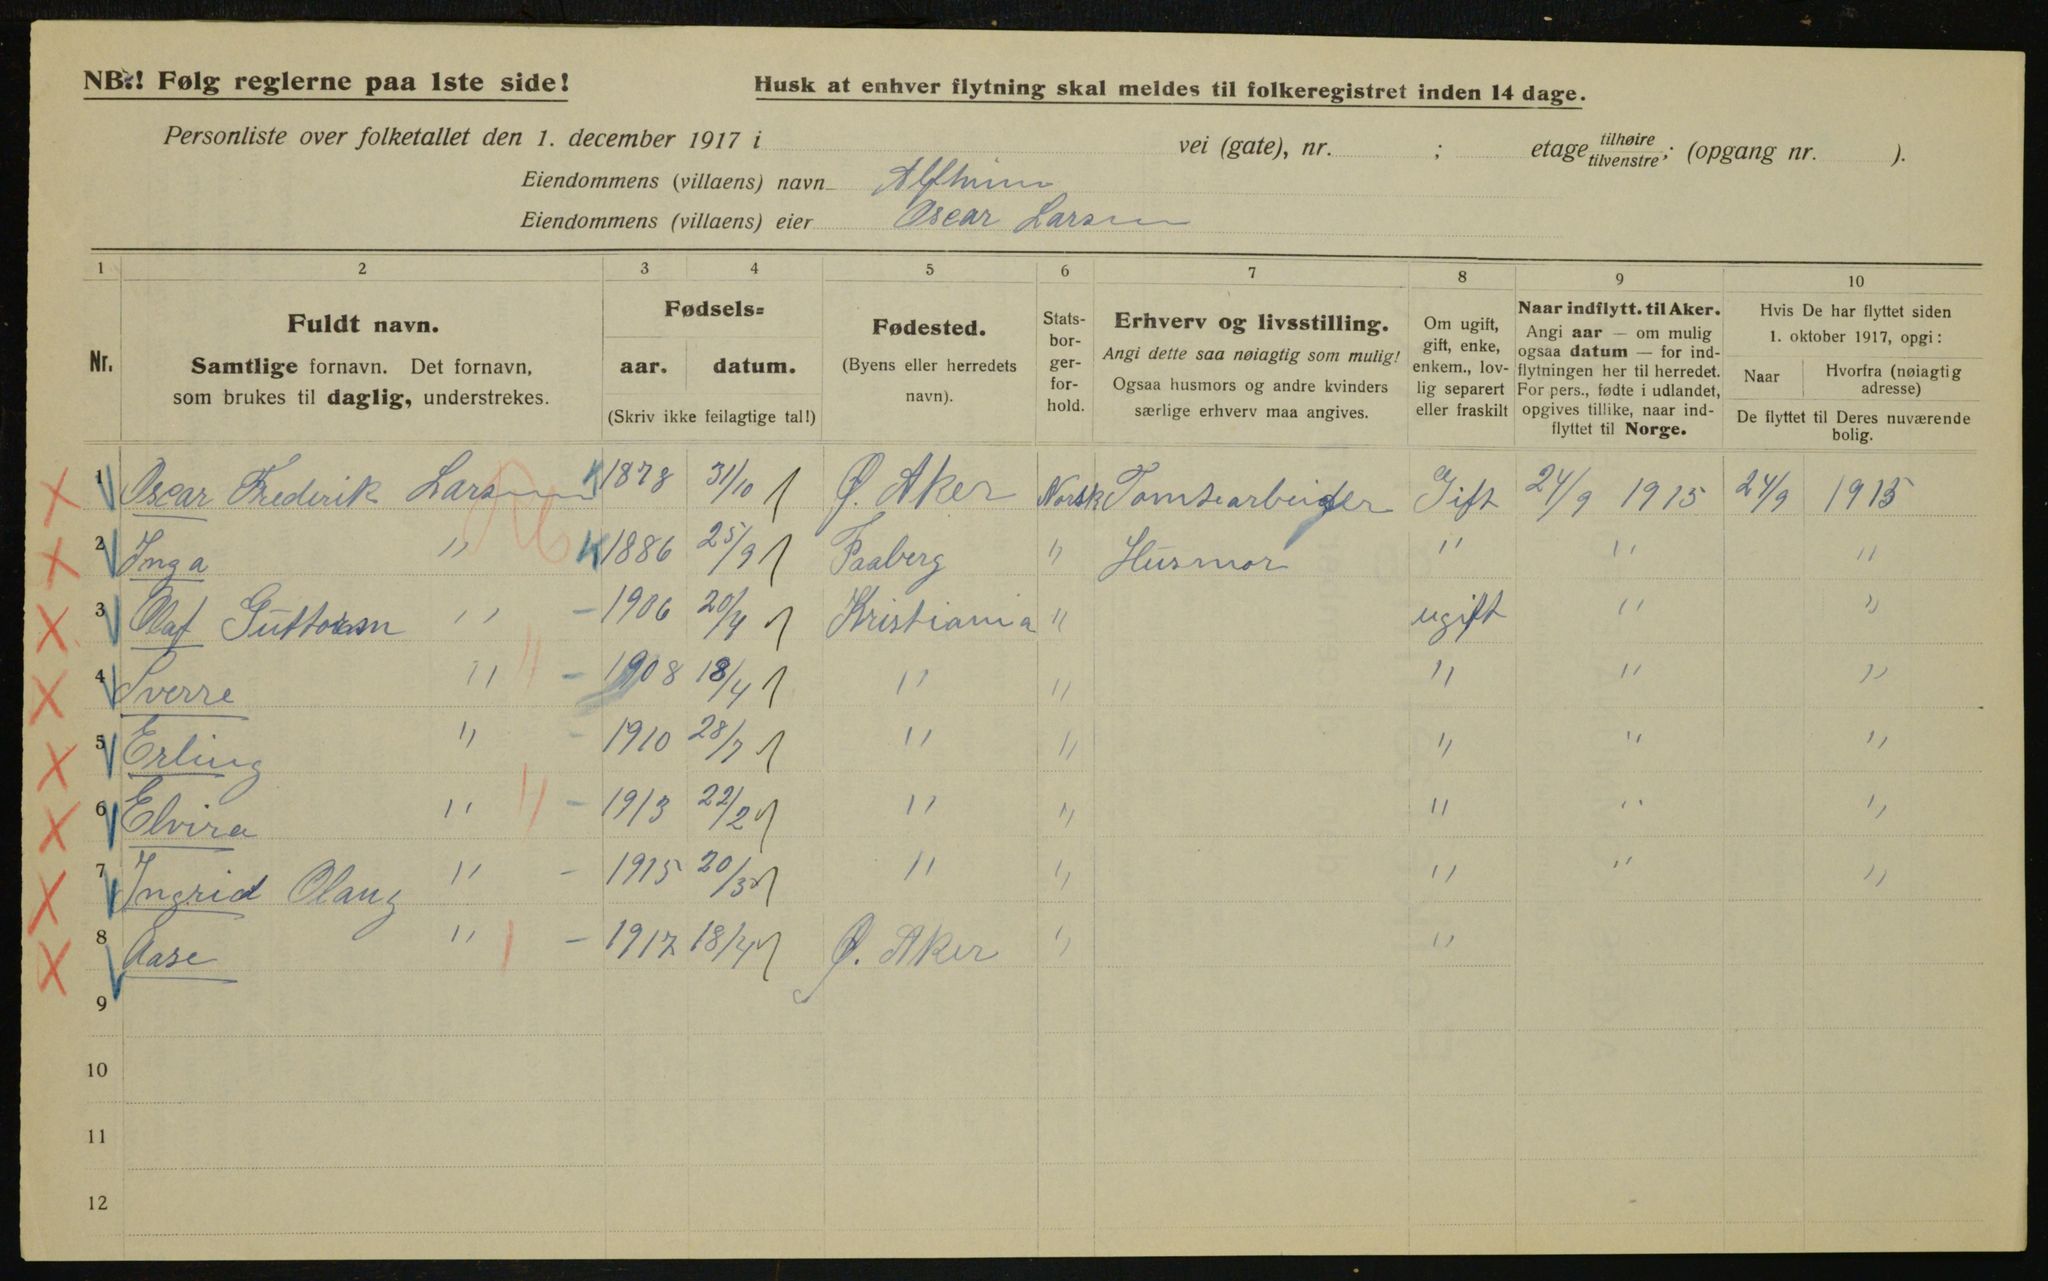 NB.! Følg reglerne paa 1ste side!
Husk at enhver flytning skal meldes til folkeregistret inden 14 dage.
Personliste over folketallet den 1. december 1917 i vei (gate), nr. ; etage tilhøire tilvenstre; (opgang nr. ).
Eiendommens (villaens) navn Alfheim
Eiendommens (villaens) eier Oscar Larsen
1 2 3 4 5 6 7 8 9 10
Nr.
Fuldt navn.
Samtlige fornavn. Det fornavn,
som brukes til daglig, understrekes.
Fødsels=
aar. datum.
(Skriv ikke feilagtige tal!)
Fødested.
(Byens eller herredets
navn).
Stats-
bor-
ger-
for-
hold.
Erhverv og livsstilling.
Angi dette saa nøiagtig som mulig!
Ogsaa husmors og andre kvinders
særlige erhverv maa angives.
Om ugift,
gift, enke,
enkem., lov-
lig separert
eller fraskilt
Naar indflytt. til Aker.
Angi aar — om mulig
ogsaa datum — for ind-
flytningen her til herredet.
For pers., fødte i udlandet,
opgives tillike, naar ind-
flyttet til Norge.
Hvis De har flyttet siden
1. oktober 1917, opgi:
Naar
Hvorfra (nøiagtig
adresse)
De flyttet til Deres nuværende
bolig.
1 Oscar Frederik Larsen 1878 31/10 Ø. Aker Norsk Tomtearbeider Gift 24/9 1915 24/9 1915
2 Inga " 1886 25/9 Faaberg " Husmor " " "
3 Olaf Guttorm " 1906 20/4 Kristiania " ugift " "
4 Sverre " 1908 18/4 " " " " "
5 Erling " 1910 28/7 " " " " "
6 Elvira " 1913 22/2 " " " " "
7 Ingrid Olaug " 1915 20/3 " " " " "
8 Aase " 1917 18/4 Ø. Aker " "
9
10
11
12